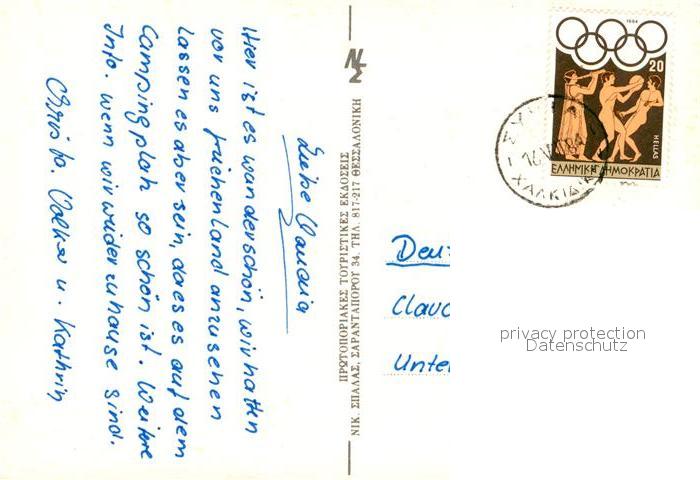 Liebe Claudia
Hier ist es wunderschön, wir hatten
vor uns Griechenland anzusehen
lassen es aber sein, da es es auf dem
Campingplatz so schön ist. Weitere
Info. wenn wir wieder zuhause sind.
Christa. Volker u. Kathrin
ΠΡΩΤΟΠΟΡΙΑΚΕΣ ΤΟΥΡΙΣΤΙΚΕΣ ΕΚΔΟΣΕΙΣ
ΝΙΚ. ΣΠΑΛΑΣ, ΣΑΡΑΝΤΑΠΟΡΟΥ 34. ΤΗΛ. 817-217 ΘΕΣΣΑΛΟΝΙΚΗ
1984
20
HELLAS
ΕΛΛΗΝΙΚΗ ΔΗΜΟΚΡΑΤΙΑ
ΧΑΛΚΙΔΙΚ
Deu
Clau
Unter
privacy protection
Datenschutz